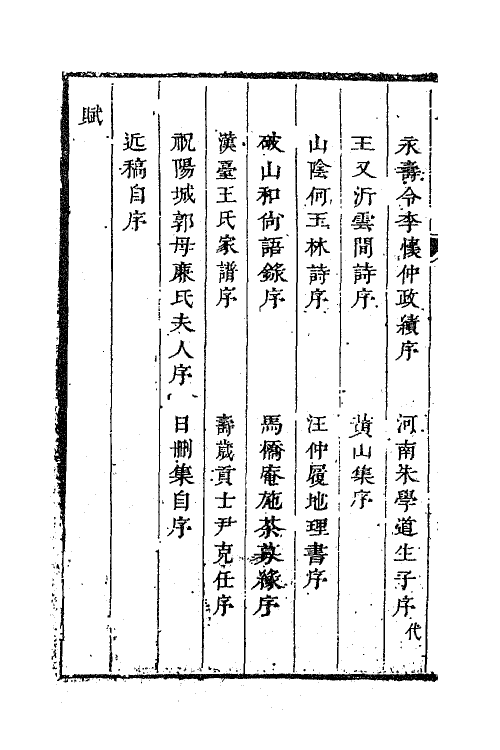 永壽令李懷仲政績序　河南朱學道生子序代
王又沂雲間詩序　黃山集序
山陰何玉林詩序　汪仲履地理書序
破山和尚語錄序　馬橋庵施茶募緣序
漢臺王氏家譜序　壽歲貢士尹克任序
祝陽城郭母廉氏夫人序　日刪集自序
近稿自序
賦